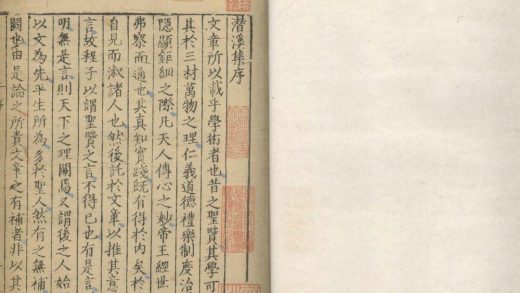 潛溪集序
文章所以載乎學術者也昔之聖賢其學可
其於三材萬物之理仁義道德禮樂制度治
隱顯鉅細之際凡天人傳心之妙帝王經世
弗察而通也其真知實踐既有得於内矣於
自見而淑諸人也然後託於文章以推其意
言故程子以謂聖賢之言不得已也有是言
明無是言則天下之理闕焉又謂後之人始
以文為先平生所為多於聖人然有之無補
闕也由是論之所貴文章之有補者非以其